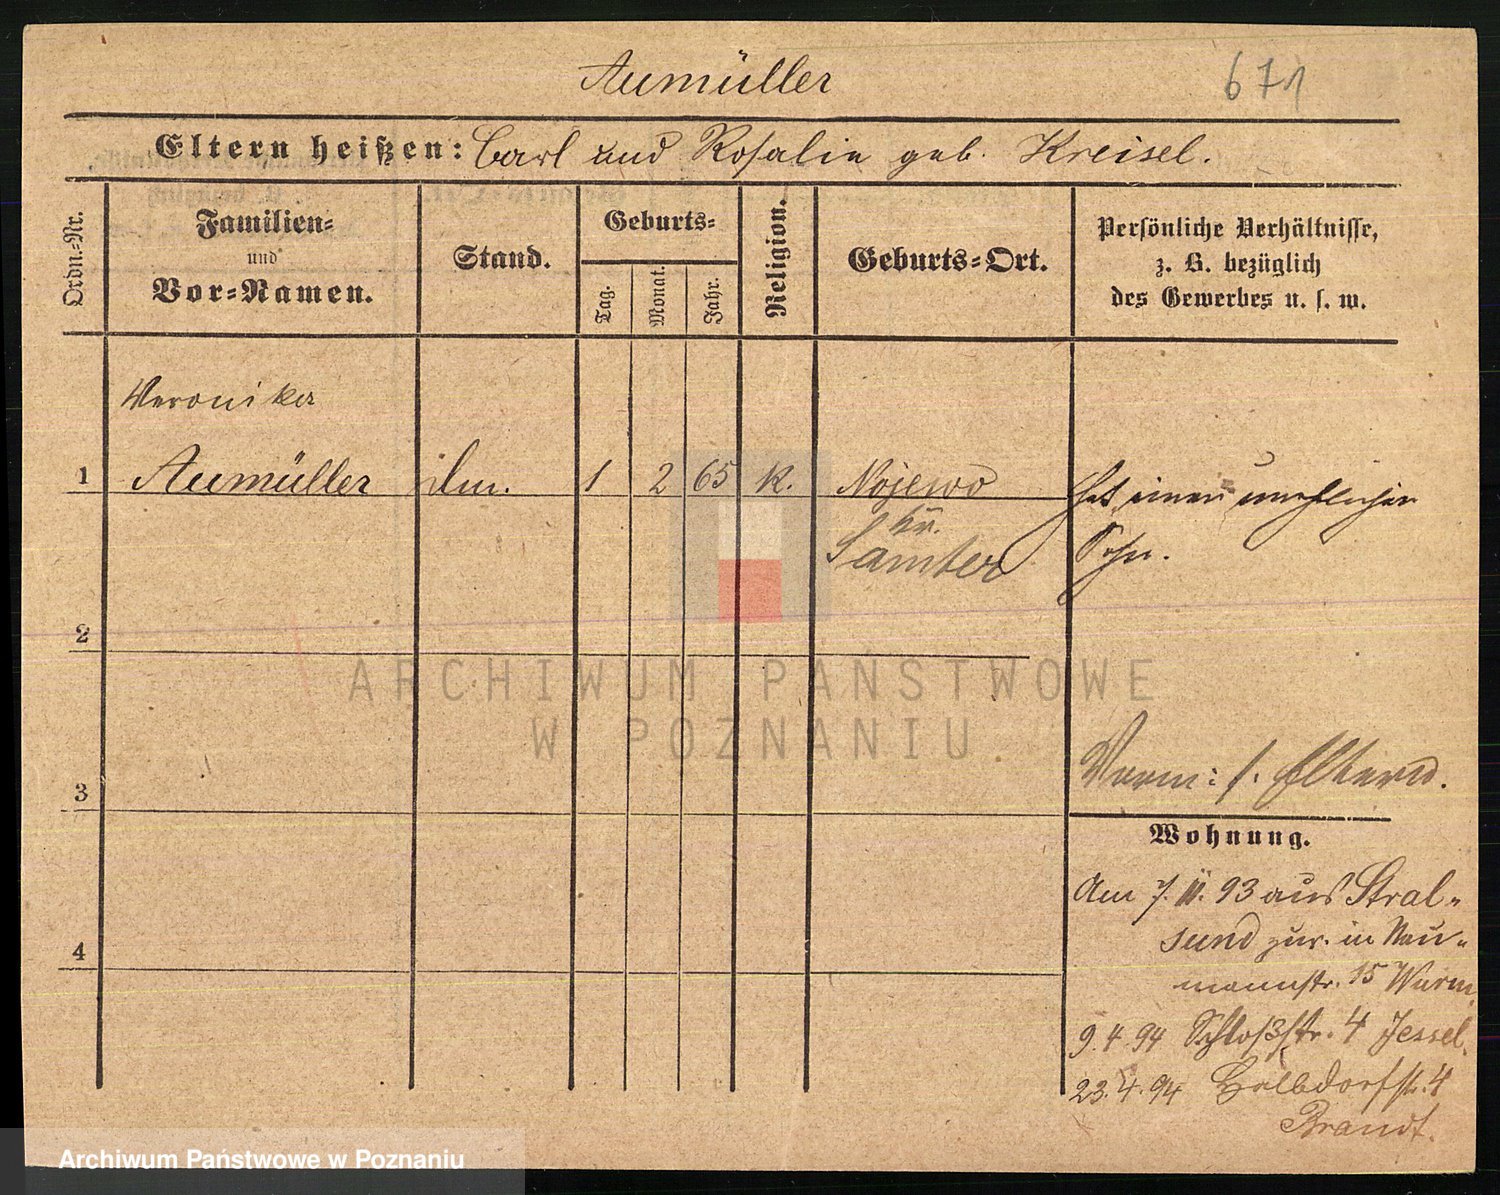 Aumüller
671
Eltern heißen: Carl und Rosalie geb. Kreisel.
Ordn.-Nr.
Familien-
und
Vor-Namen.
Stand.
Geburts-
Tag.
Monat.
Jahr.
Religion.
Geburts-Ort.
Persönliche Verhältnisse,
z. B. bezüglich
des Gewerbes u. s. w.
Veronika
1 Aumüller 1 2 65 k. Nojewo hat einen unehelichen
Kr.
Samter Sohn.
2
ARCHIWUM PAŃSTWOWE
W POZNANIU
3
Wohnung.
Am 7. II. 93 aus Stral-
sund zur. in Nau-
mannstr. 15 Wurm.
4
9.4.94 Schloßstr. 4 Jessel.
23.4.94 Halbdorfstr. 4
Brandt.
Archiwum Państwowe w Poznaniu